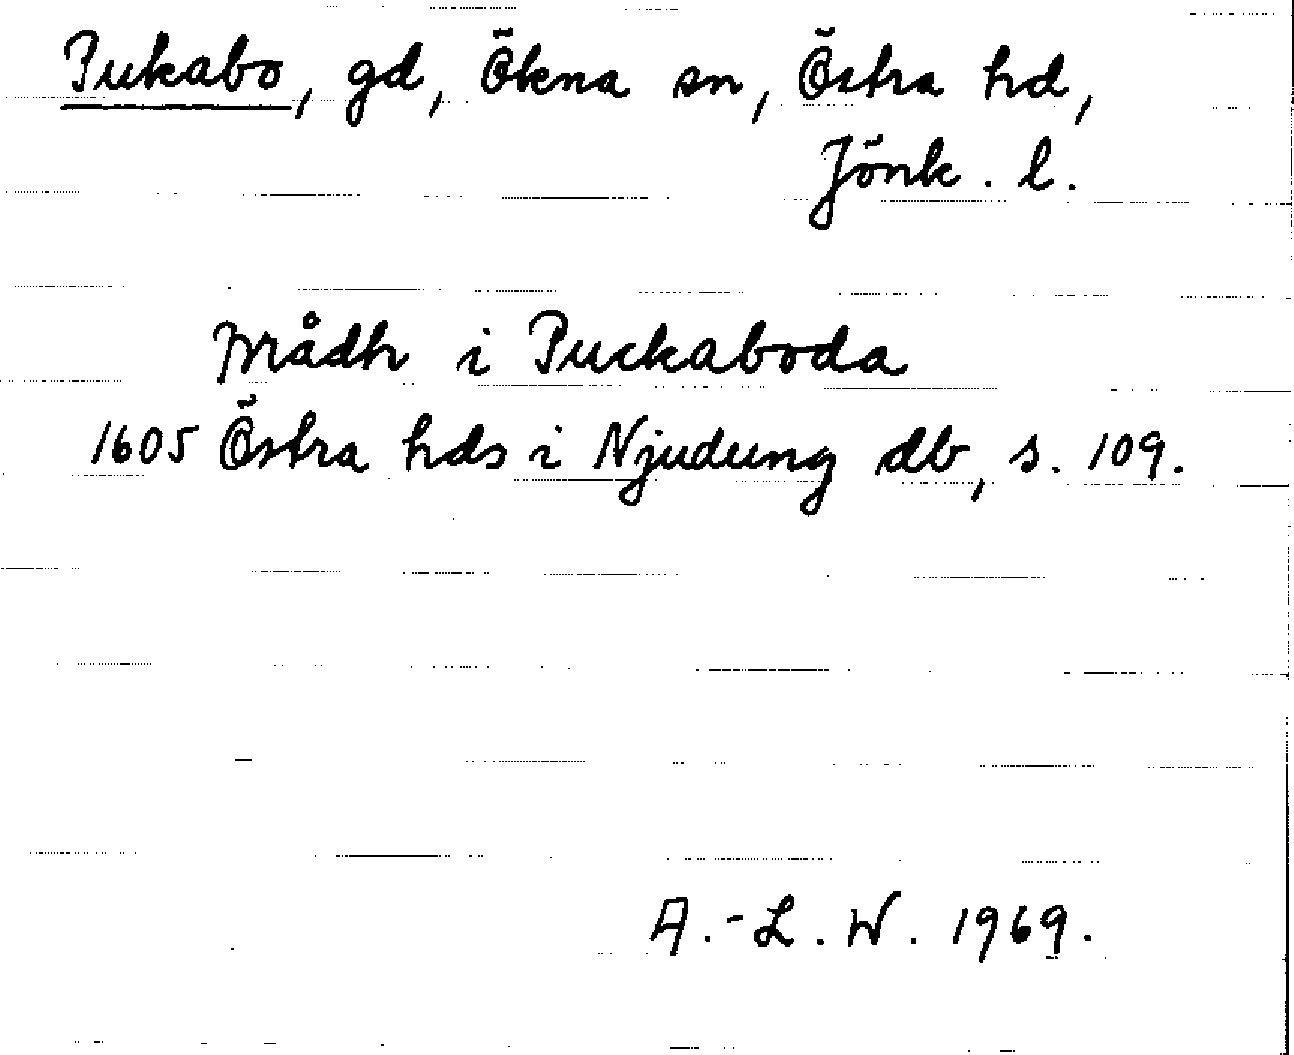 Pukabo, gd, Ökna sn, Östra hd,
Jönk. l.
Mådh i Puckaboda
1605 Östra hds i Njudung db, s. 109.
A.-L. W. 1969.